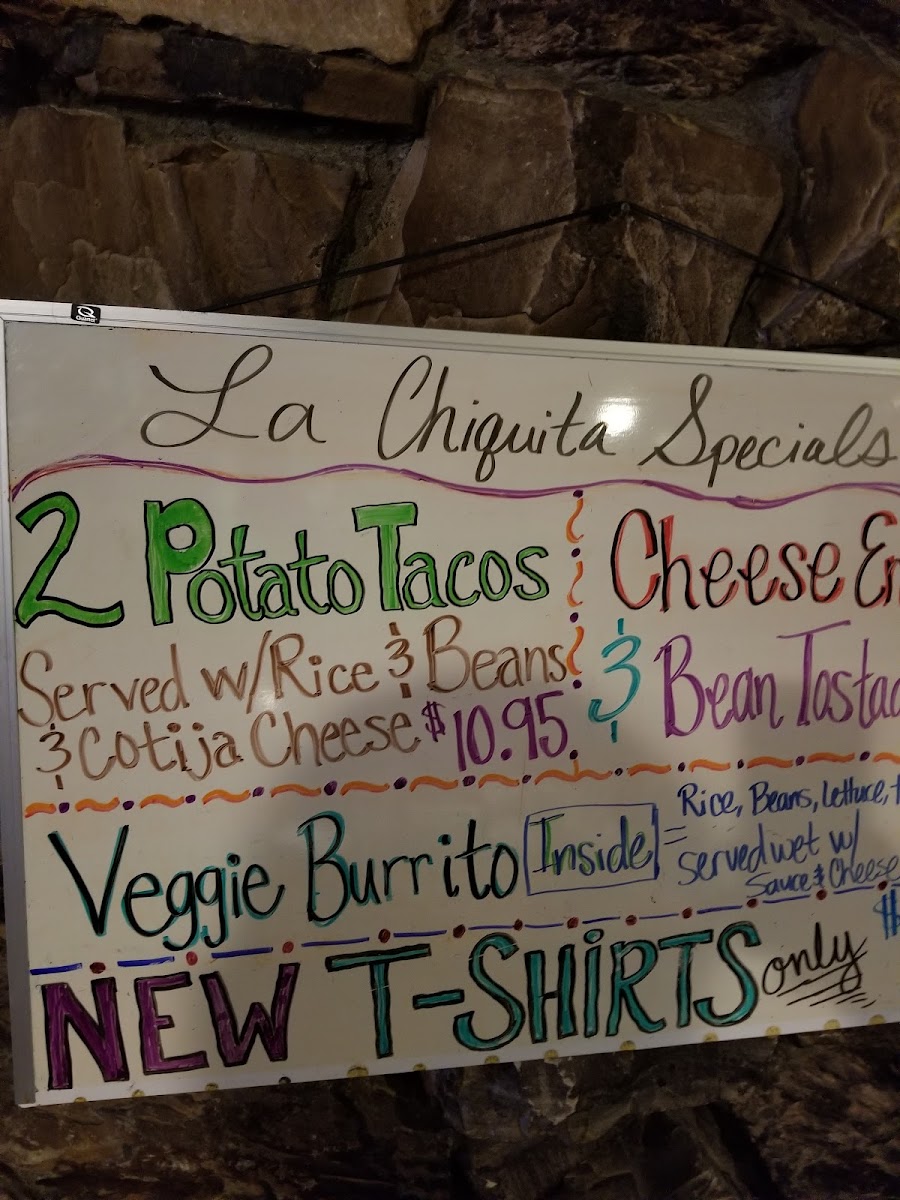 Quartet
La Chiquita Specials
2 Potato Tacos
Served w/Rice & Beans
& Cotija Cheese $10.95
Cheese
& Bean
Veggie Burrito Inside =
Rice, Beans, Lettuce,
served wet w/
Sauce & Cheese
$
NEW T-SHIRTS only